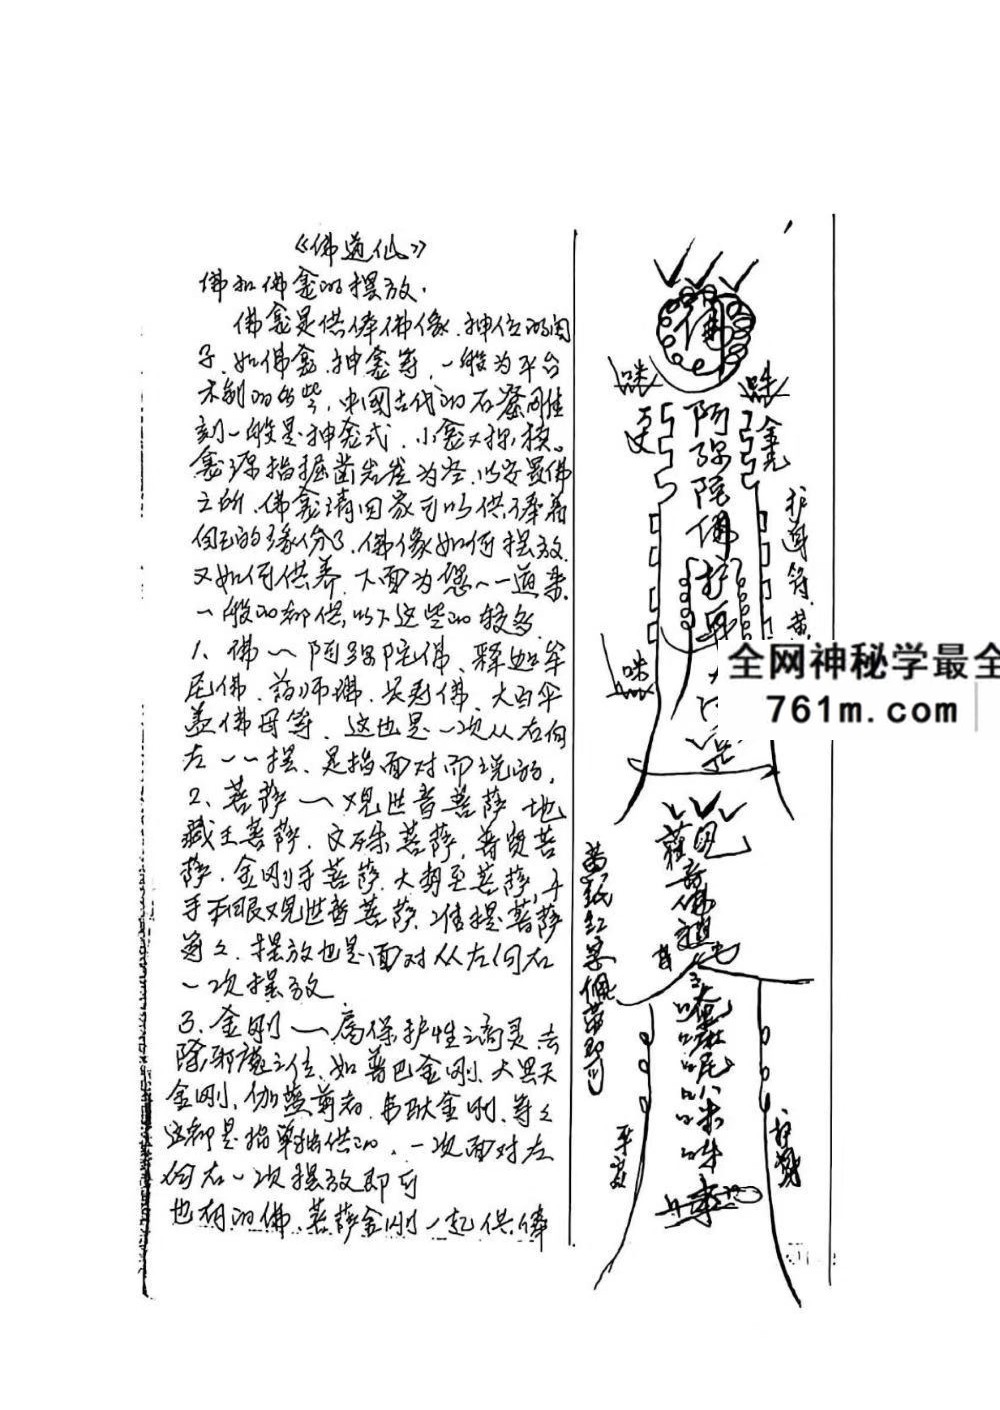 《佛道仙》
佛和佛龛的摆放.
佛龛是供俸佛像.神位的阁
子.如佛龛.神龛等.一般为平台
木制的多些,中国古代的石窟雕
刻一般是神龛式.小龛又称
龛源指掘凿岩崖为空.以安置佛
之所.佛龛请回家可以供俸着
自己的缘分了.佛像如何摆放.
又如何供养.下面为您一一道来.
一般的都供以下这些的较多.
1、佛一阿弥陀佛.释迦牟
尼佛.药师佛.长寿佛.大白伞
盖佛母等.这也是一次从右向
左一一摆、是指面对而说的.
2、菩萨一观世音菩萨 地
藏王菩萨.文殊菩萨,普贤菩
萨.金刚手菩萨.大势至菩萨,千
手千眼观世音菩萨.准提菩萨
等々.摆放也是面对从左向右
一次摆放
3、金刚一属保护性之 灵去
除邪 之位、如普巴金刚.大黑天
金刚、伽蓝尊者.韦驮金刚.等々
这都是指单独供的.一次面对左
向右一次摆放即可
也有的佛.菩萨金刚一起供俸
佛
阿弥陀佛护身
金光
护身符.黄
观
佛祖
唵 呢 八 咪 吽
黄纸红字佩带即可
平安
护身
全网神秘学最全
761m.com